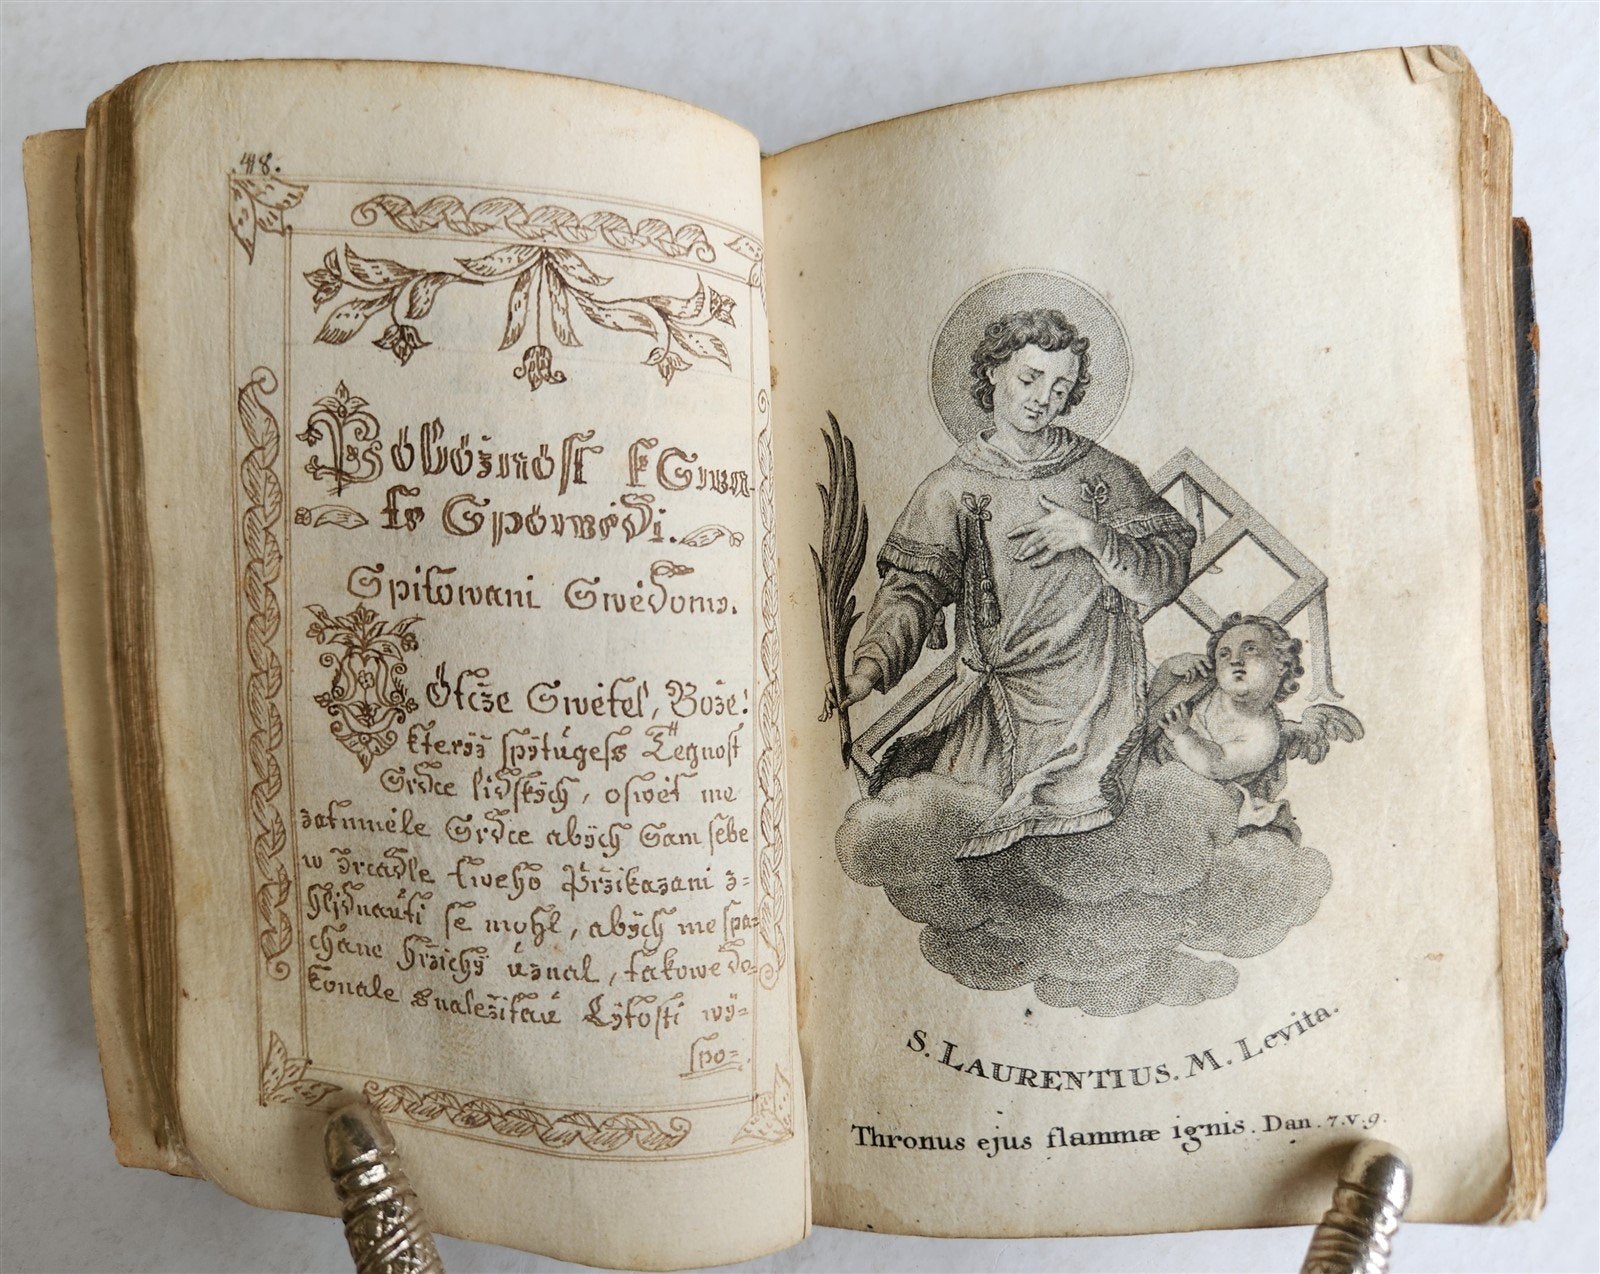 48.
Pobožnost k Swa-
te Spowědi.
Spitowani Swědomi.
Ó Otcže Swětel, Bože!
kteryž spÿtugess Tegnost
Srdce lidskÿch, oswět me
zatmněle Srdce abÿch Sam sebe
w Zrcadle tweho Pržikazani z=
hlidnauti se mohl, abÿch me spa=
chane hržichÿ uznal, takowe do=
konale a naležitau Lÿtosti wÿ=
spo=
S. LAURENTIUS. M. Levita.
Thronus ejus flammæ ignis. Dan. 7. v. 9.